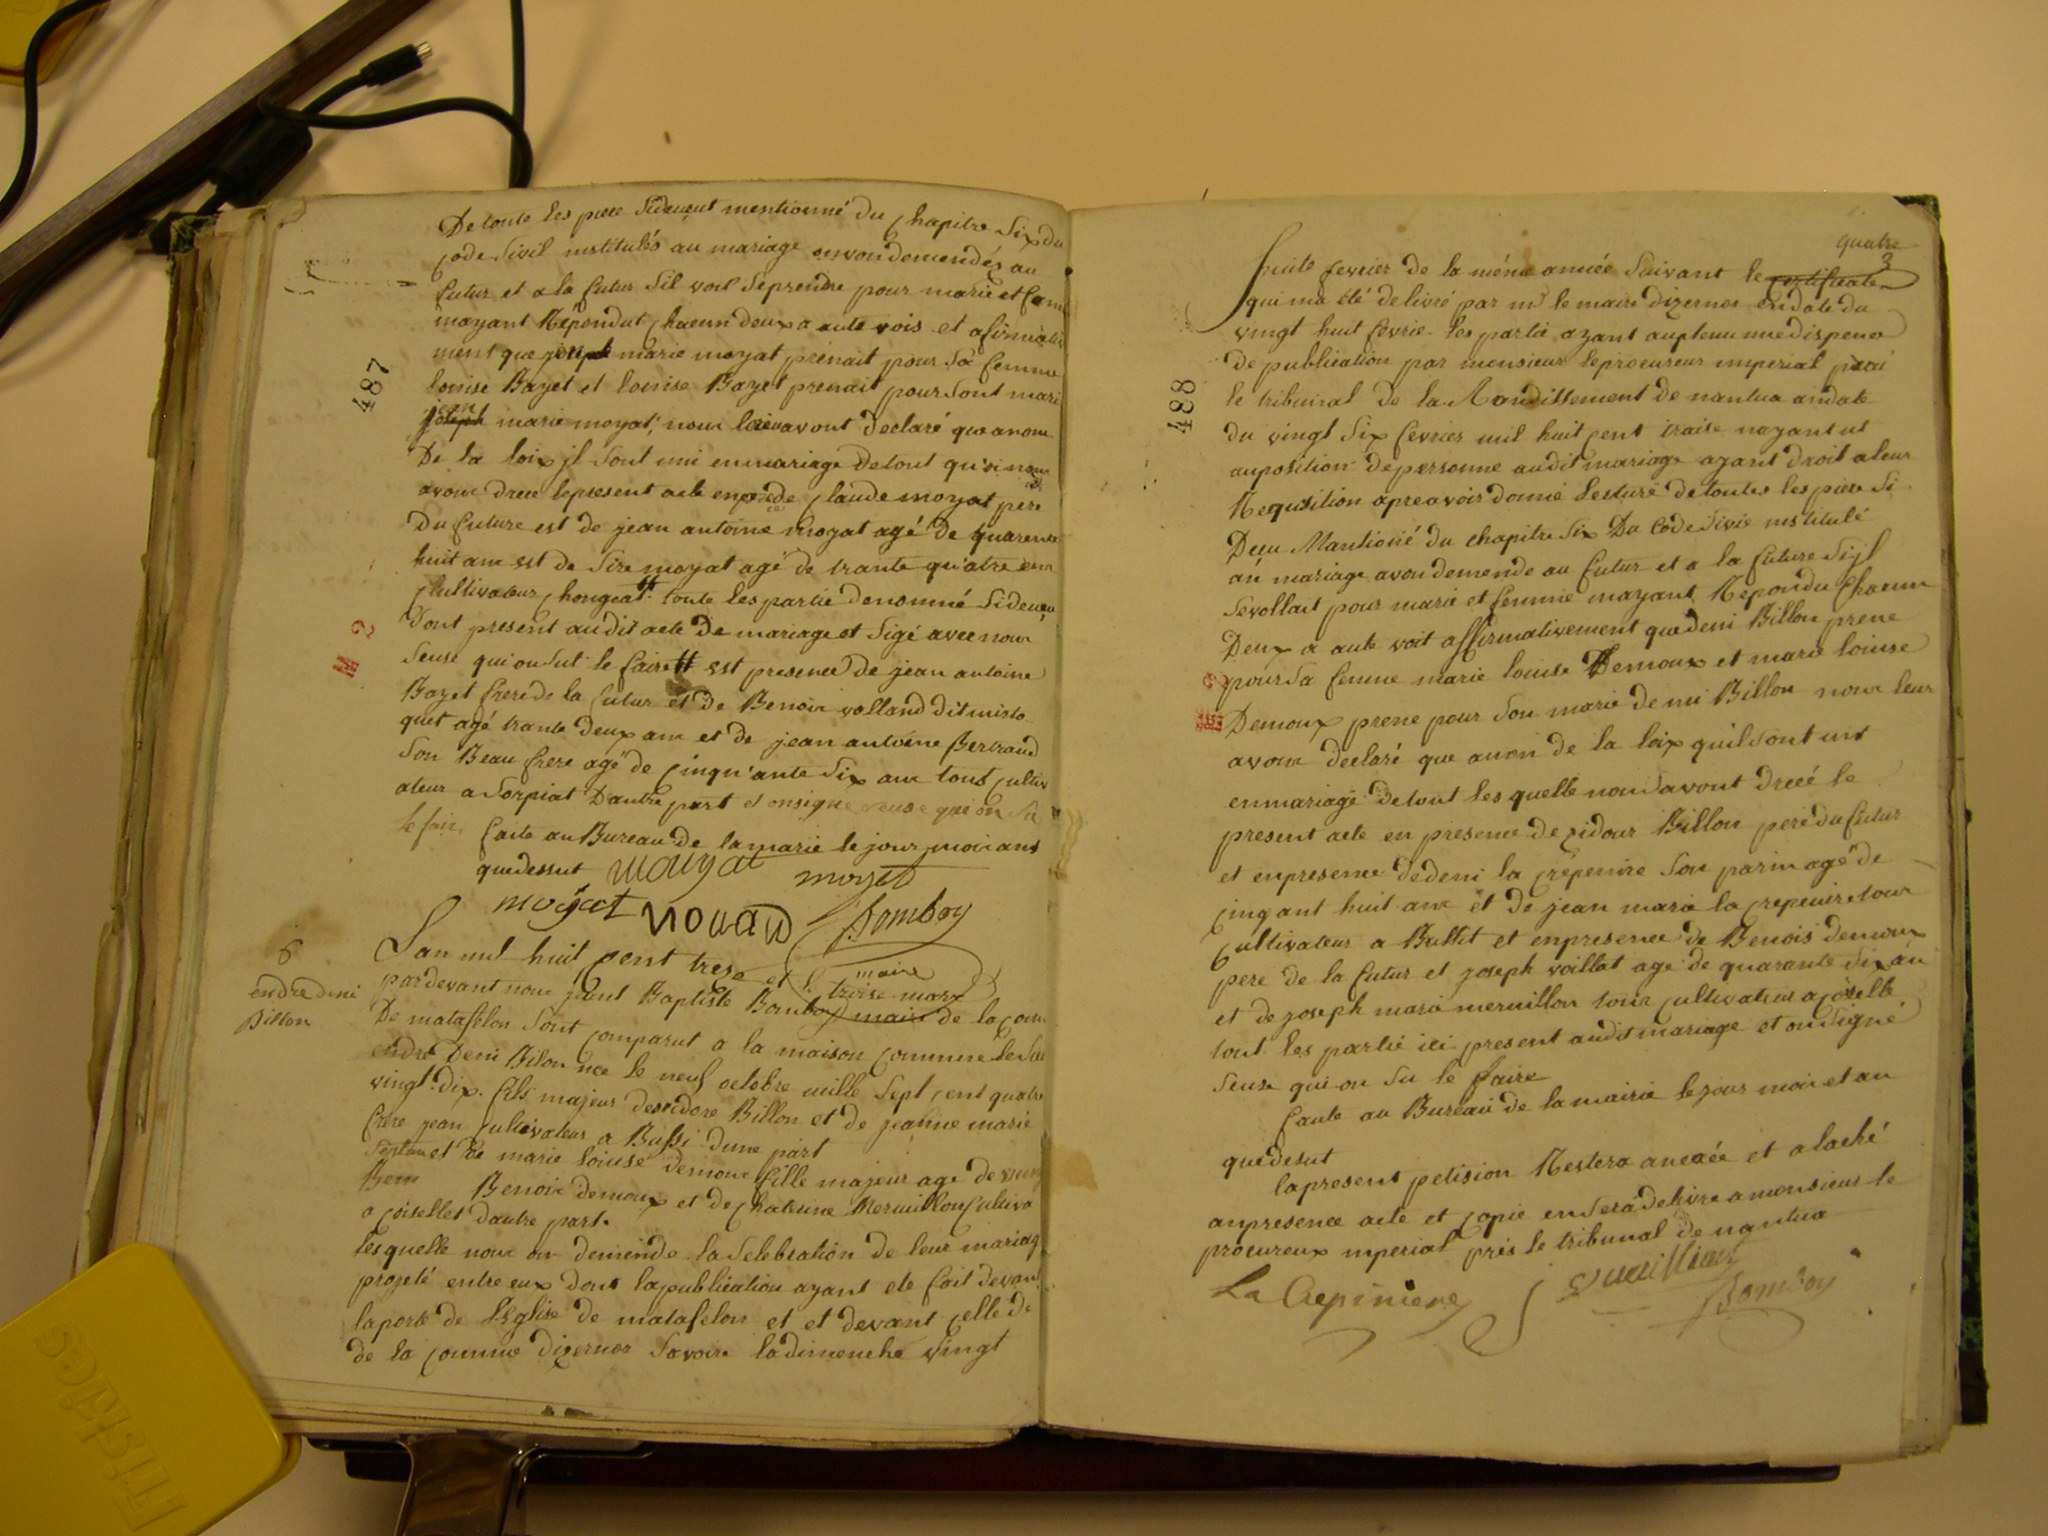 De toute les piece sideuent mentionné du chapitre six du
code sivil institulés au mariage avon demendés au
futur et a la futur sil voul se prendre pour marie et fam
mayant Rependut chacun deux a aute vois et afirmativ
ment que joseph marie moyat prenait pour sa femme
louise Bazet et louise Bazet prenait pour sont mari
jean
joseph marie moyat, nous leur avont declaré que anom
De la loix jl sont uni en mariage de tout quoi nous
avour drece le present acte en de claude moyat pere
Du future est de jean antoine moyat agé de quarente
huit ans est de Sire moyat agé de trante quatre ans
Cultivateur chongeat toute les partie denomé sideuen
Sont present audit acte de mariage et sigé avec nous
seuse qui on sut le faire est presence de jean antoine
Bazet frere de la futur et de Benoir volland dit misto
quet agé trante deux ans et de jean antoine Bertrand
son Beau frere agé de cinquante six ans tous cultiv
ateur a Sorpiat Dautre part et on signe seuse qui on su
le fair
faite au Bureau de la marie le jour mois ans
quedessut mouyat moyat
moyat vouad Bomboy
6
endre deni
Billon
Lan mil huit cent treze et le troise mars
pardevant nous jeant Baptiste Bomboy maire de la com
maire
De matafelon sont comparut a la maison commune le sieur
endre Deni Bilon nee le neuf octobre mille sept cent quatre
vingt dix fils majeur desidore Billon et de jeanne marie
frere jean cultivateur a Bussi dune part
et de marie louise demoux fille majeur age de vingt
Benoir demoux et de chaterine Mermillon cultiva
a coisellet dautre part
lesquelle nous on demende la selebration de leur mariag
projeté entre eux dont la publication ayant ete fait devant
la porte de l'Eglise de matafelon et et devant celle de
de la commune dizernor savoire la dimenche vingt
487
quatre
3
huite fevrier de la même année suivant le certificate
qui ma eté delivré par mr le maire dizernor en date du
vingt huit fevrie les partie ayant auptenu une dispence
de publication par monsieur le procuseur imperial prai
le tribuinal de la Rondissement de nantua en date
du vingt six fevrier mil huit cent traise nayant ut
auposition de personne audit mariage ayant droit a leur
Requisition apre avoir donné lesture de toutes les piece si
Deçu Mantioné du chapitre six Du Code sivie institulé
au mariage avon demende au futur et a la future sijl
se vollait pour marie et femme mayant Repondu chacun
Deux a aute voit affirmativement que deni Billon prene
pour sa femme marie louise Demoux et marie louise
Demoux prene pour son marie de ni Billon nour leur
avour declaré que anon de la loix quil sont unt
en mariage de tout les quelle nous avont drecé le
present acte en presence de zidour Billon pere du futur
et en presence de deni la crepenire son parin agé de
cinqant huit ans et de jean marie la crepenire tour
Cultivateur a Bussit et en presence de Benois demoux
pere de la futur et joseph voillat agé de quarante six an
et de joseph marie mermillon tour cultivateur a coiselle
tout les partie ici present audit mariage et on signé
seuse qui on su le faire
faute au Bureau de la mairie le jour moir et an
quedesut
la present petision Restera anexée et alaché
au presence acte et copie en sera delivre a monsieur le
procureux imperial près le tribunal de nantua
La Crepiniere Bomboy
488